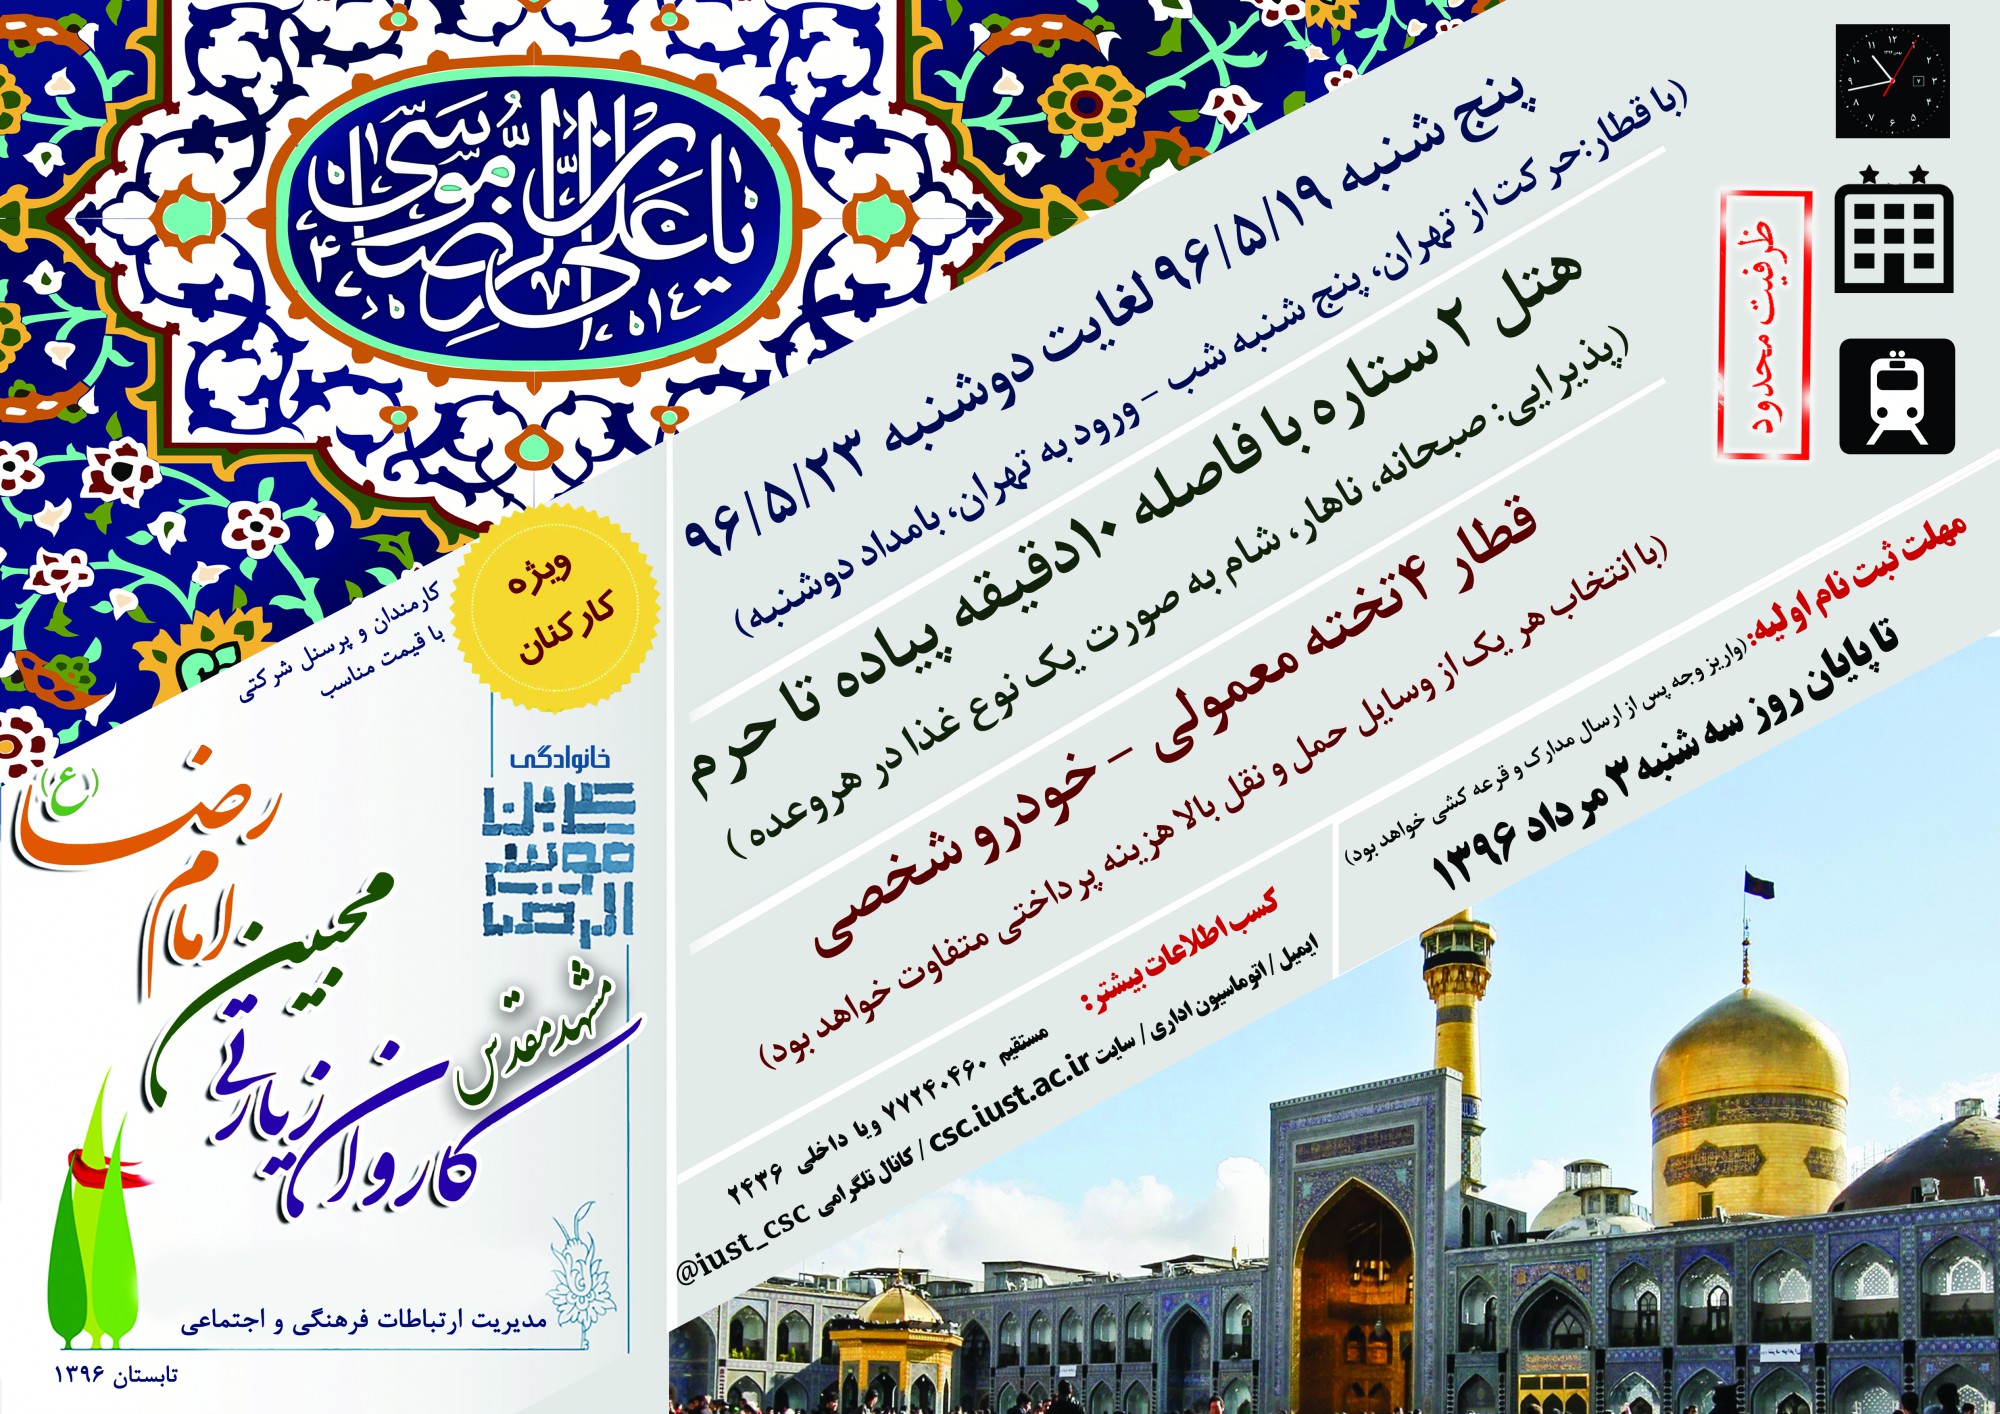 یا علی بن موسی الرضا
پنج شنبه ۹۶/۵/۱۹ لغایت دوشنبه ۹۶/۵/۲۳
(با قطار:حرکت از تهران، پنج شنبه شب - ورود به تهران، بامداد دوشنبه)
هتل ۲ ستاره با فاصله ۱۰دقیقه پیاده تا حرم
(پذیرایی: صبحانه، ناهار، شام به صورت یک نوع غذا در هروعده )
قطار ۴تخته معمولی - خودرو شخصی
(با انتخاب هر یک از وسایل حمل و نقل بالا هزینه پرداختی متفاوت خواهد بود)
ظرفیت محدود
مهلت ثبت نام اولیه:(واریز وجه پس از ارسال مدارک و قرعه کشی خواهد بود)
تا پایان روز سه شنبه ۳ مرداد ۱۳۹۶
کسب اطلاعات بیشتر:
مستقیم ۷۷۲۴۰۴۶۰ ویا داخلی ۲۴۳۶
ایمیل / اتوماسیون اداری / سایت csc.iust.ac.ir / کانال تلگرامی @iust_csc
ویژه
کارکنان
کارمندان و پرسنل شرکتی
با قیمت مناسب
خانوادگی
علی بن
موسی
الرضا
کاروان زیارتی
محبین
امام
رضا (ع)
مشهد مقدس
مدیریت ارتباطات فرهنگی و اجتماعی
تابستان ۱۳۹۶